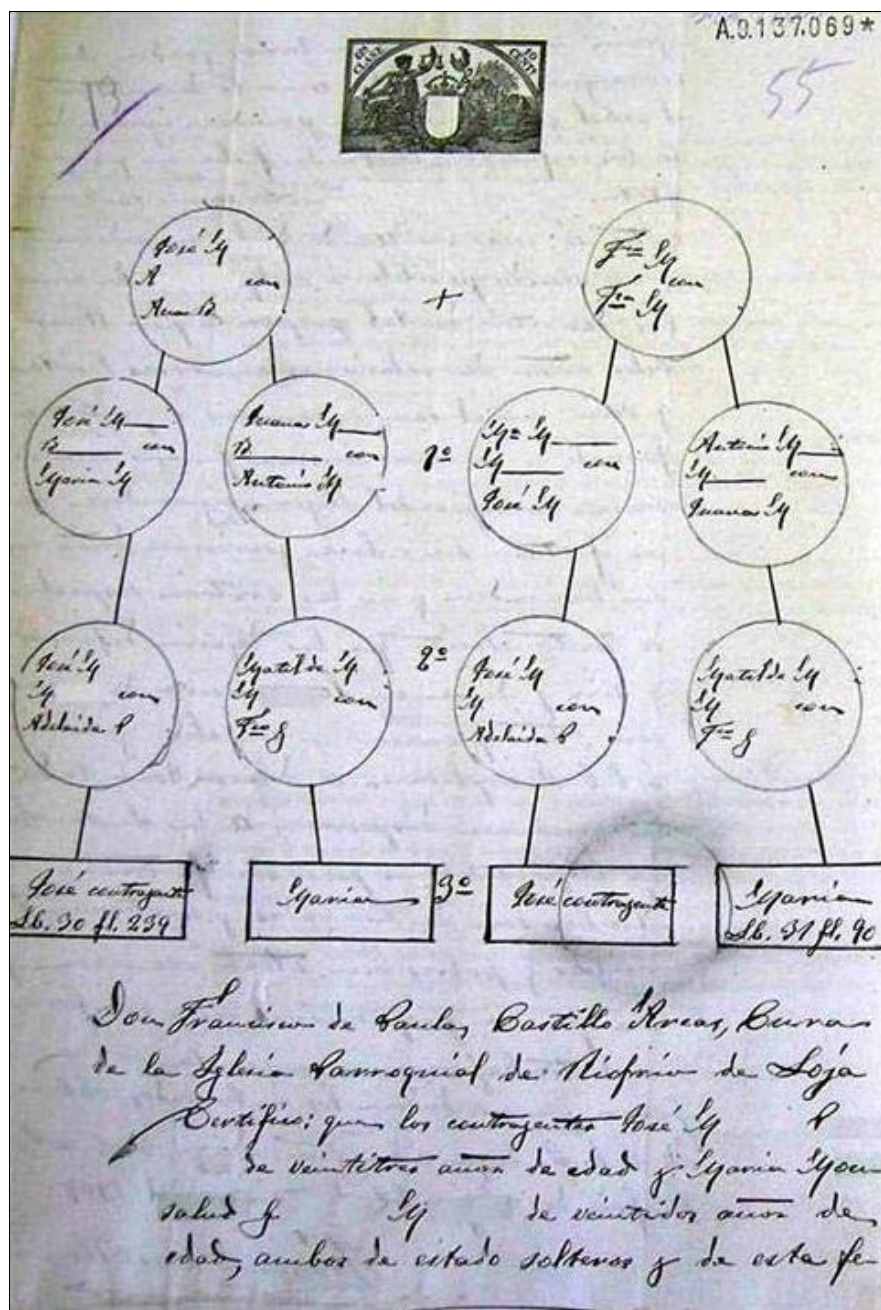 A.0.137.069*
10ª CLASE 10 CENTS
55
José M
A con
Ana B
+
Fco M
con
Fca M
José M
B con
María M
Juana M
B con
Antonio M
1º
Mª M
M con
José M
Antonio M
M con
Juana M
José M
M con
Adelaida P
Matilde M
M con
Fco G
2º
José M
M con
Adelaida P
Matilde M
M con
Fco G
José contrayente
Lb. 30 fl. 239
María
3º
José contrayente
María
Lb. 31 fl. 90
Don Francisco de Paula Castillo Arcas, Cura
de la Iglesia Parroquial de Riofrio de Loja
Certifico: que los contrayentes José M P
de veintitres años de edad y María Mon
salud G M de veintidos años de
edad, ambos de estado solteros y de esta fe-